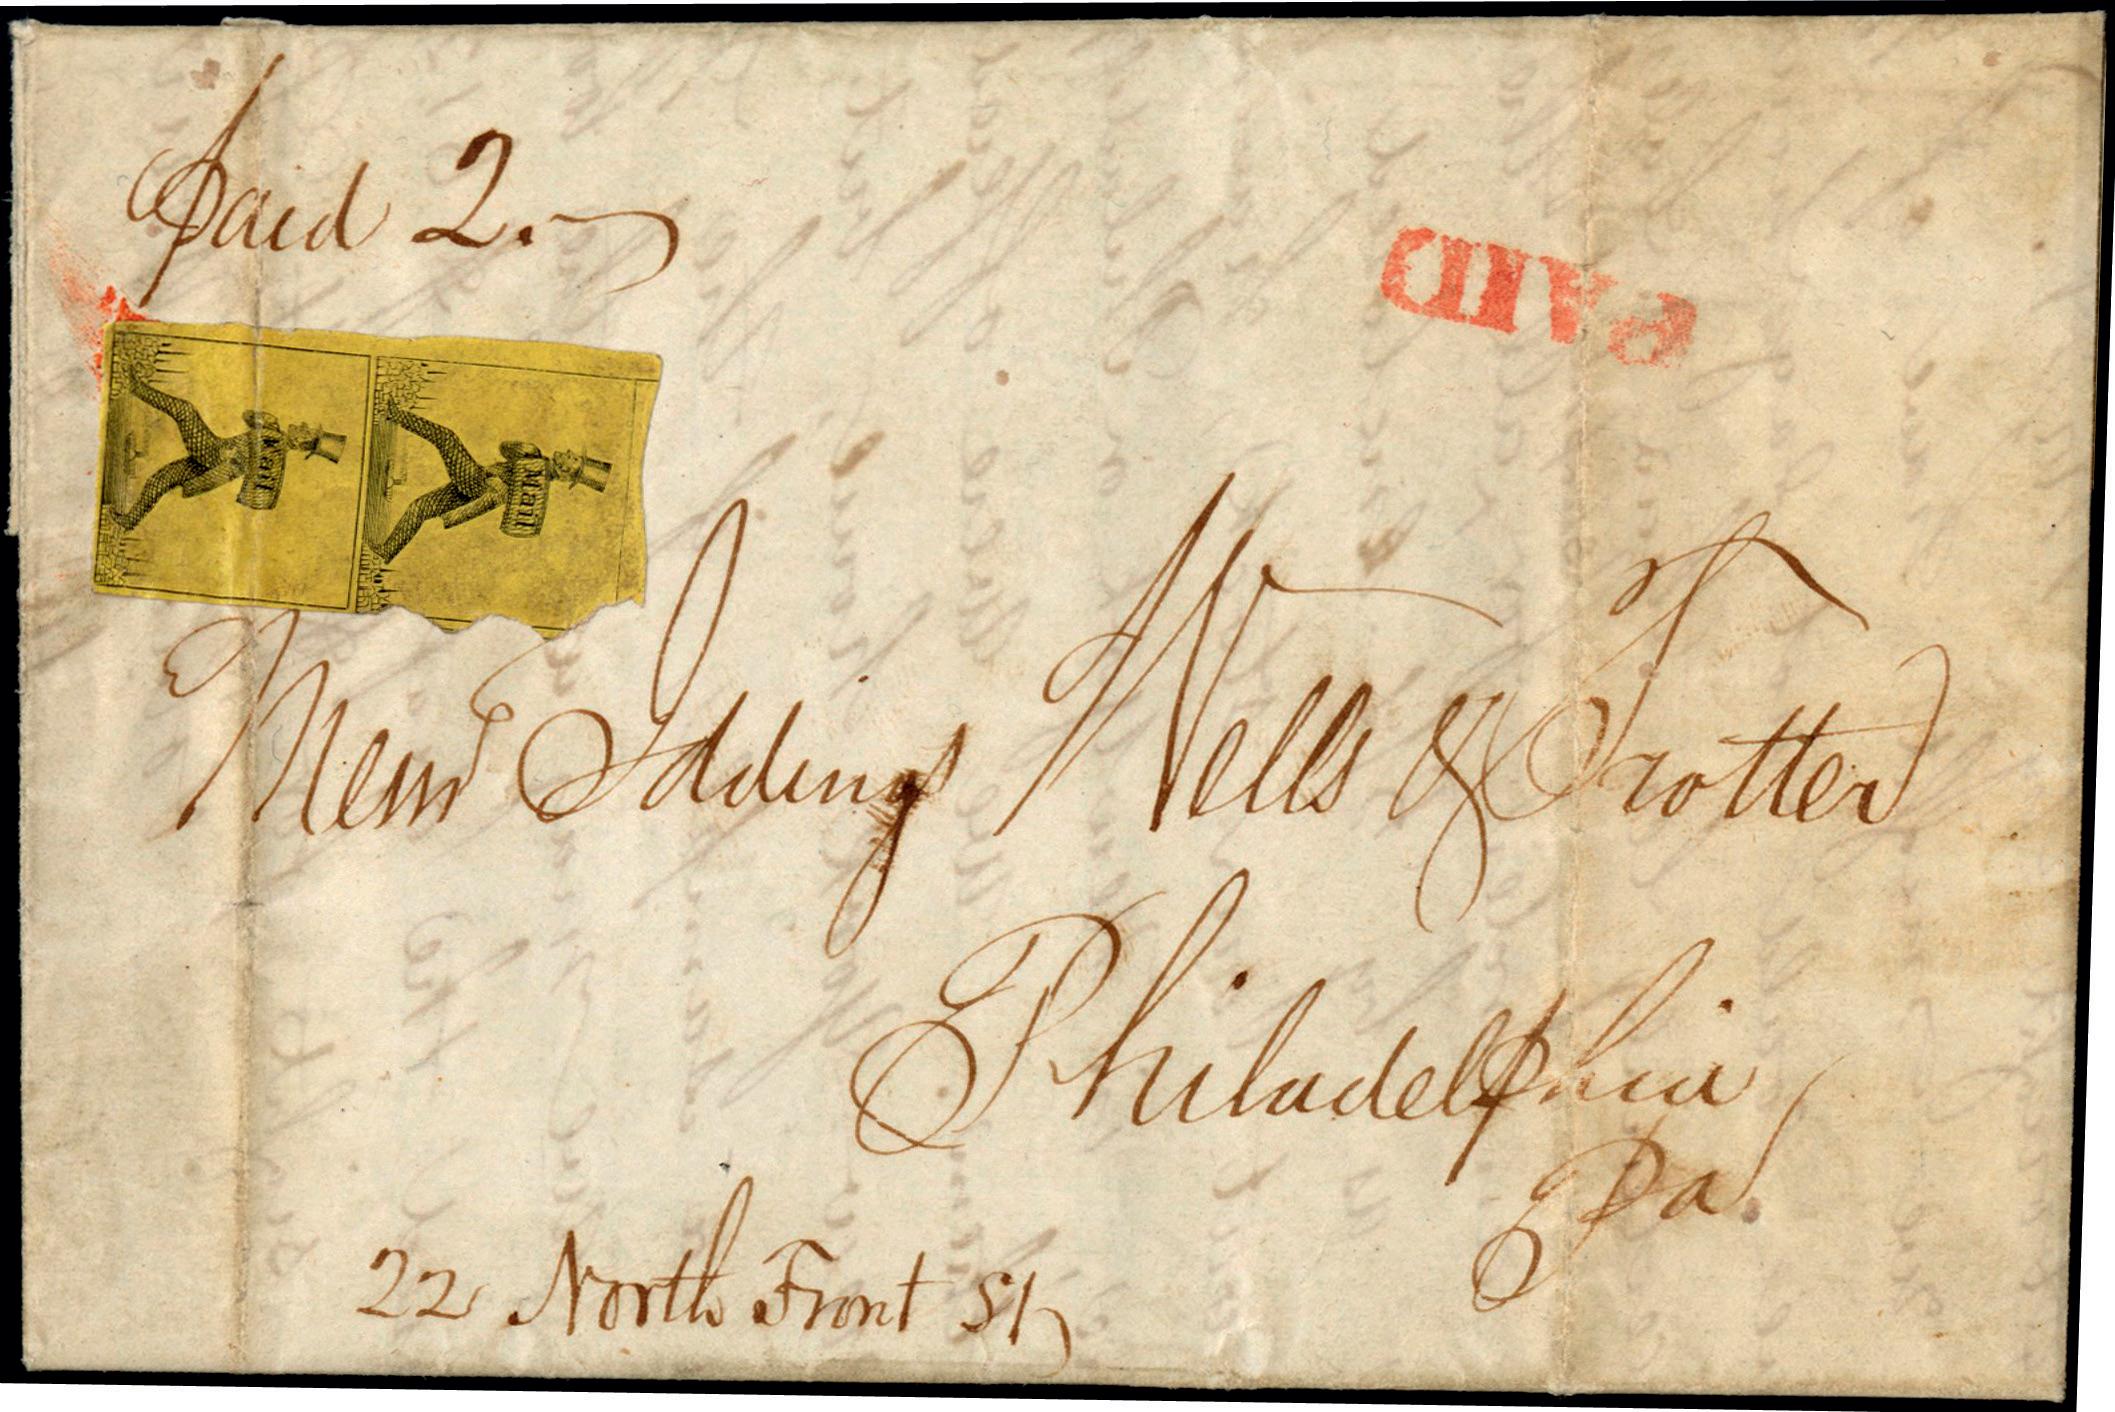 Paid 2.
PAID
Mail
Mail
Messrs Iddings Wells & Trotter
Philadelphia
Pa.
22 North Front St